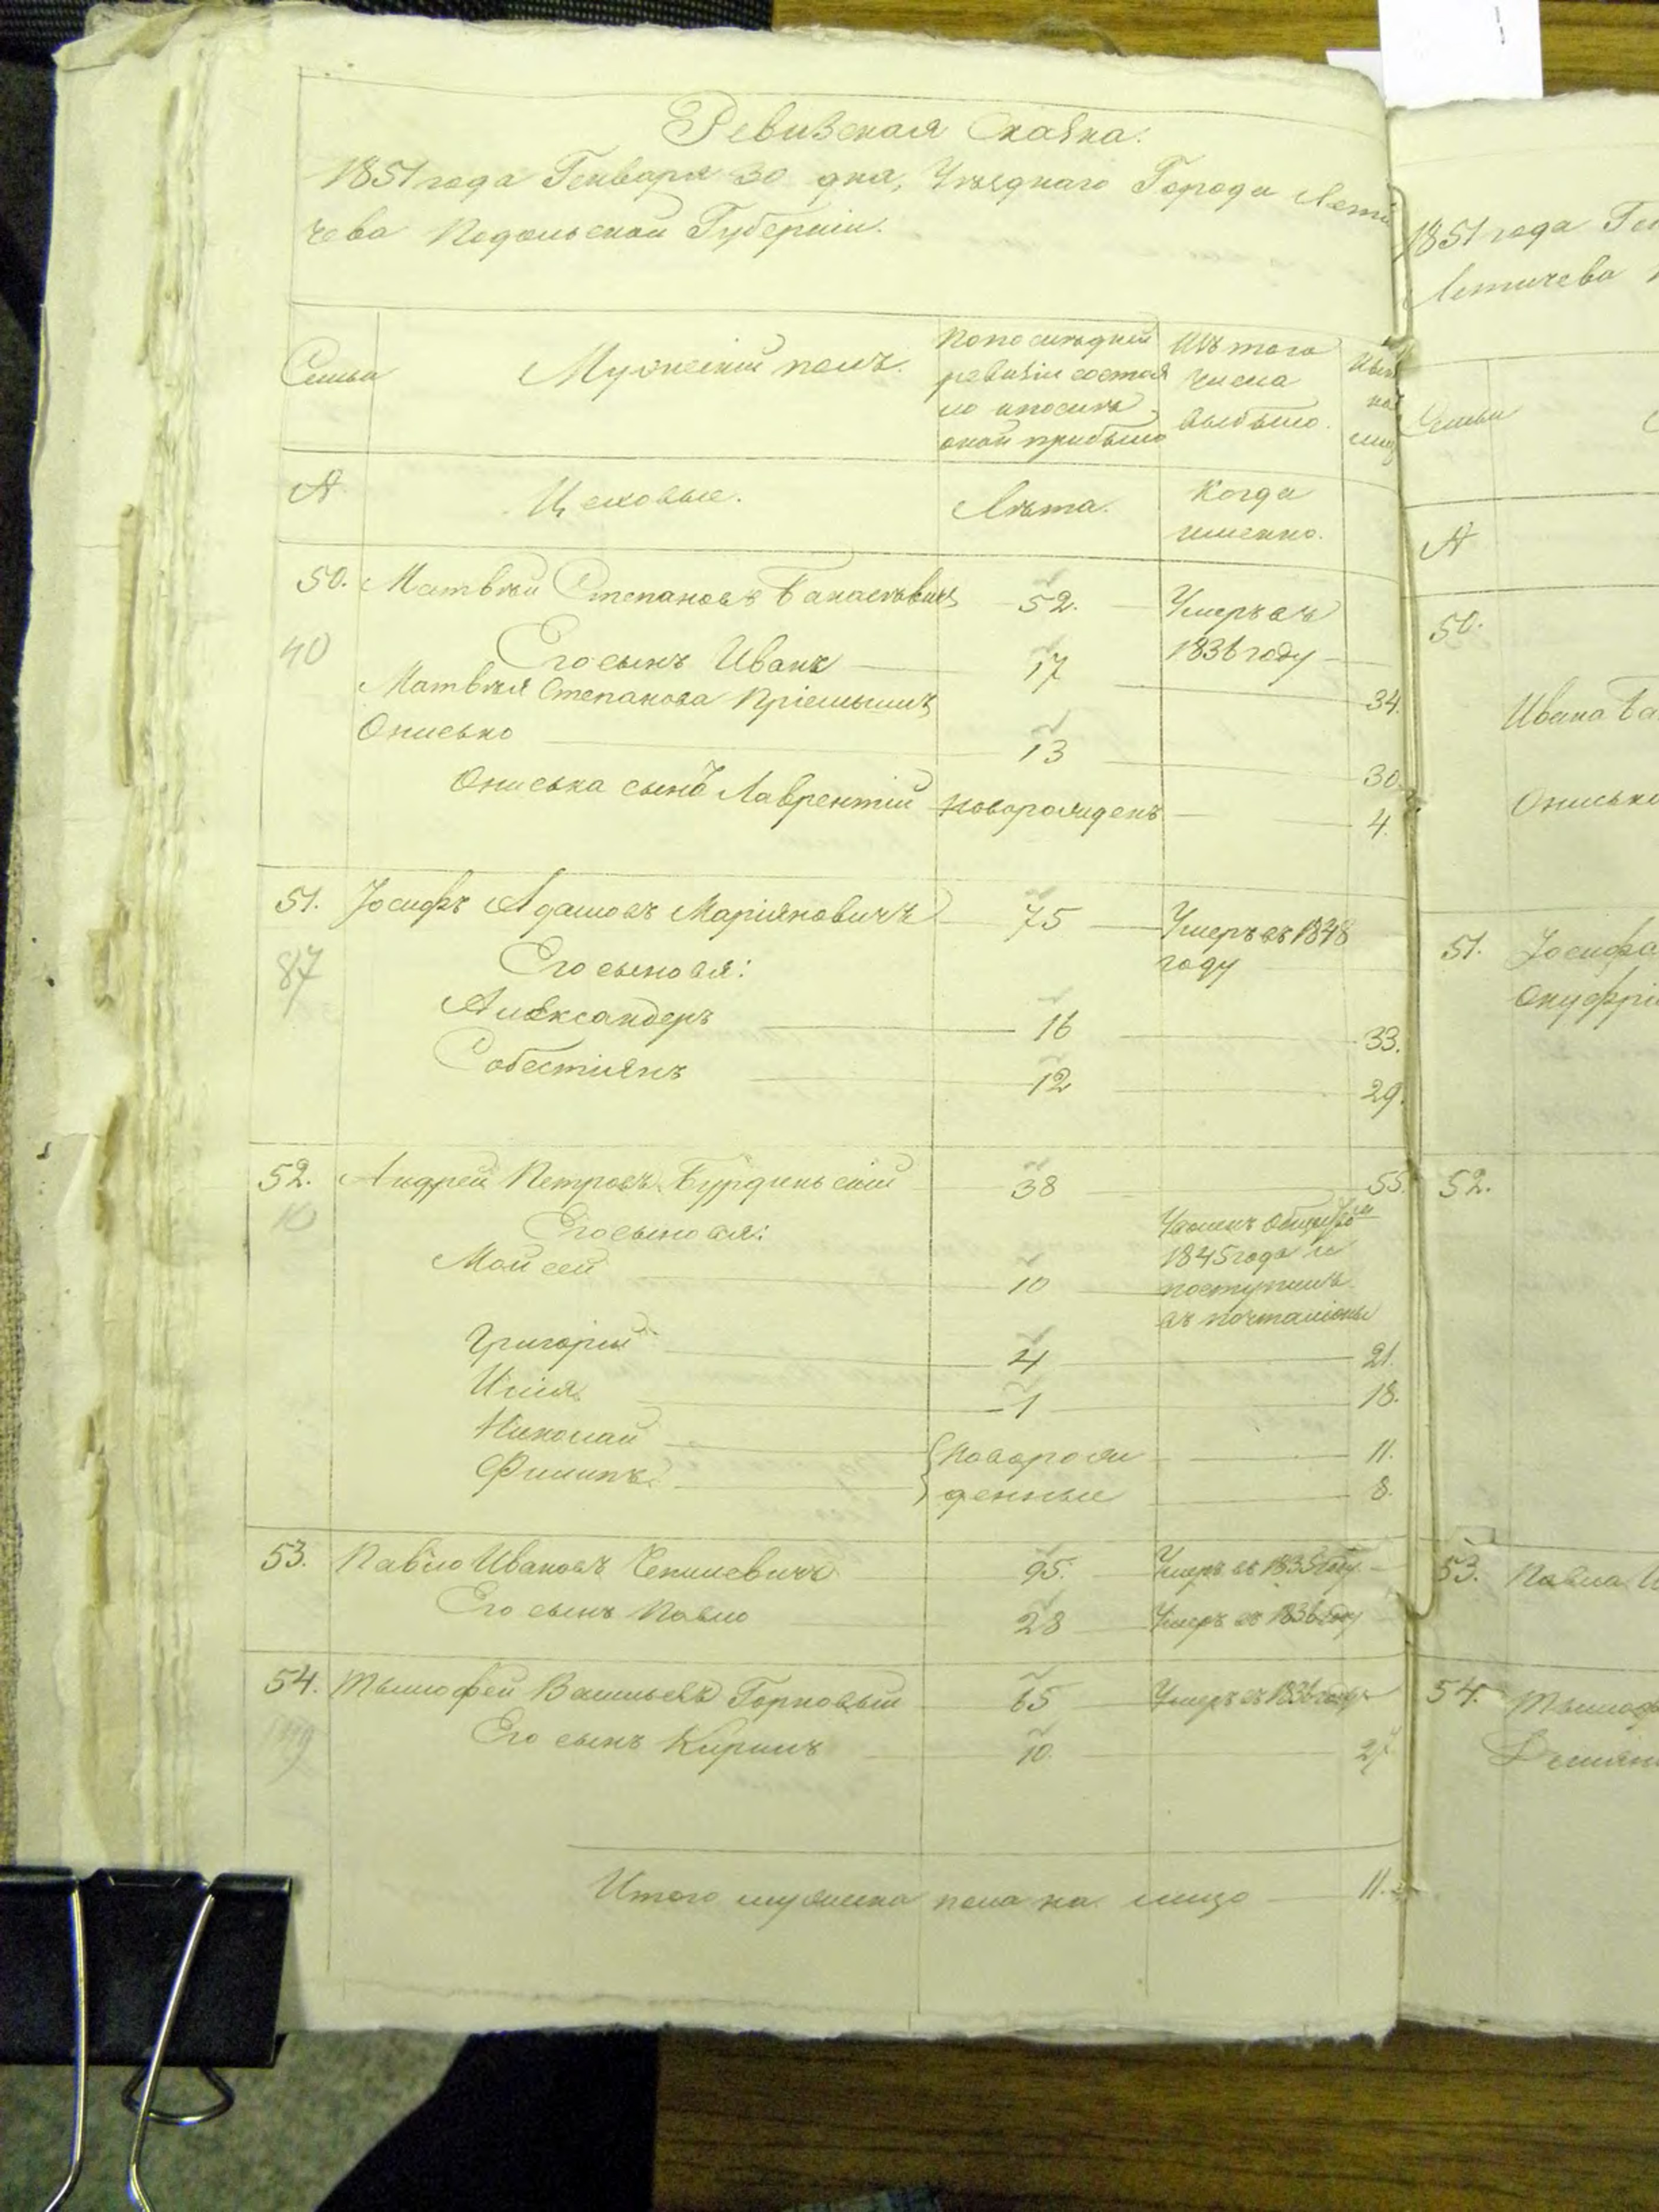 Ревизская Сказка.
1851 года Генваря 30 дня, Уѣзднаго Города Лети
чева Подольской Губерніи.
Семьи
Мужескій полъ.
По последней
ревизіи состоя
ло и послѣ
оной прибыло
Изъ того
числа
выбыло.
Нын
на
лиц
А
Цеховые.
Лѣта.
Когда
именно.
50. Матвѣй Степановъ Банасевичъ 52. Умеръ въ
40 Его сынъ Иванъ 17 1836 году
Матвѣя Степанова Пріемышъ 34.
Онисько 13 30.
Ониська сынъ Лаврентій новорожденъ 4.
51. Іосифъ Адамовъ Маріяновичъ 75 Умеръ въ 1848
87 Его сыновья: году
Александеръ 16 33.
Собестіянъ 12 29.
52. Андрей Петровъ Бурдинскій 38 55.
10 Его сыновья:
1845 года и
Мойсей 10 поступилъ
въ почталіоны
Григорій 4 21.
Илія 1 18.
Николай новорож 11.
Филипъ денные 8.
53. Павло Ивановъ 95. Умеръ въ 1835 году
Его сынъ Павло 28 Умеръ въ 1836 году
54. Тымофей Васильевъ Горновый 65 Умеръ въ 1836 году
Его сынъ Кирилъ 10. 27.
Итого мужеска пола на лицо 11.
1851 года Ген
Летичева
Семьи
А
50.
Ивана Ба
Ониська
51. Іосифа
Онуфрі
52.
53. Павла И
54. Тымоф